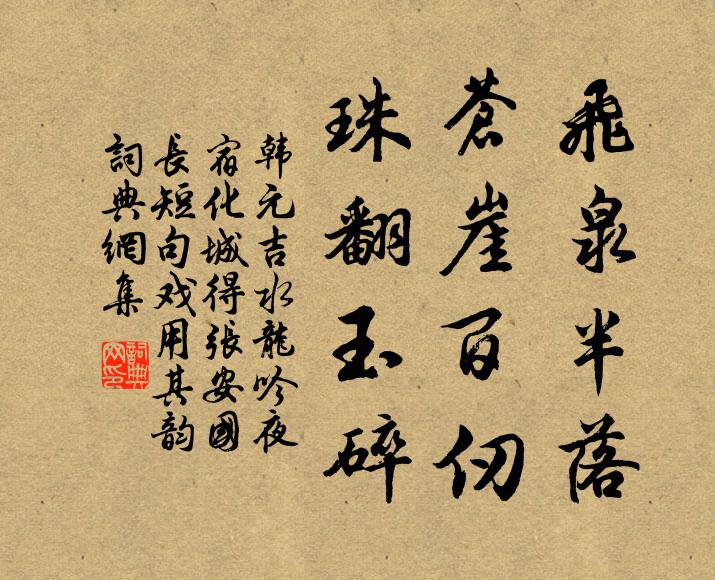 飛泉半落
蒼崖百仞
珠翻玉碎
韩元吉水龍吟夜
宿化城得張安國
長短句戏用其韵
詞典網集
詞典
网印